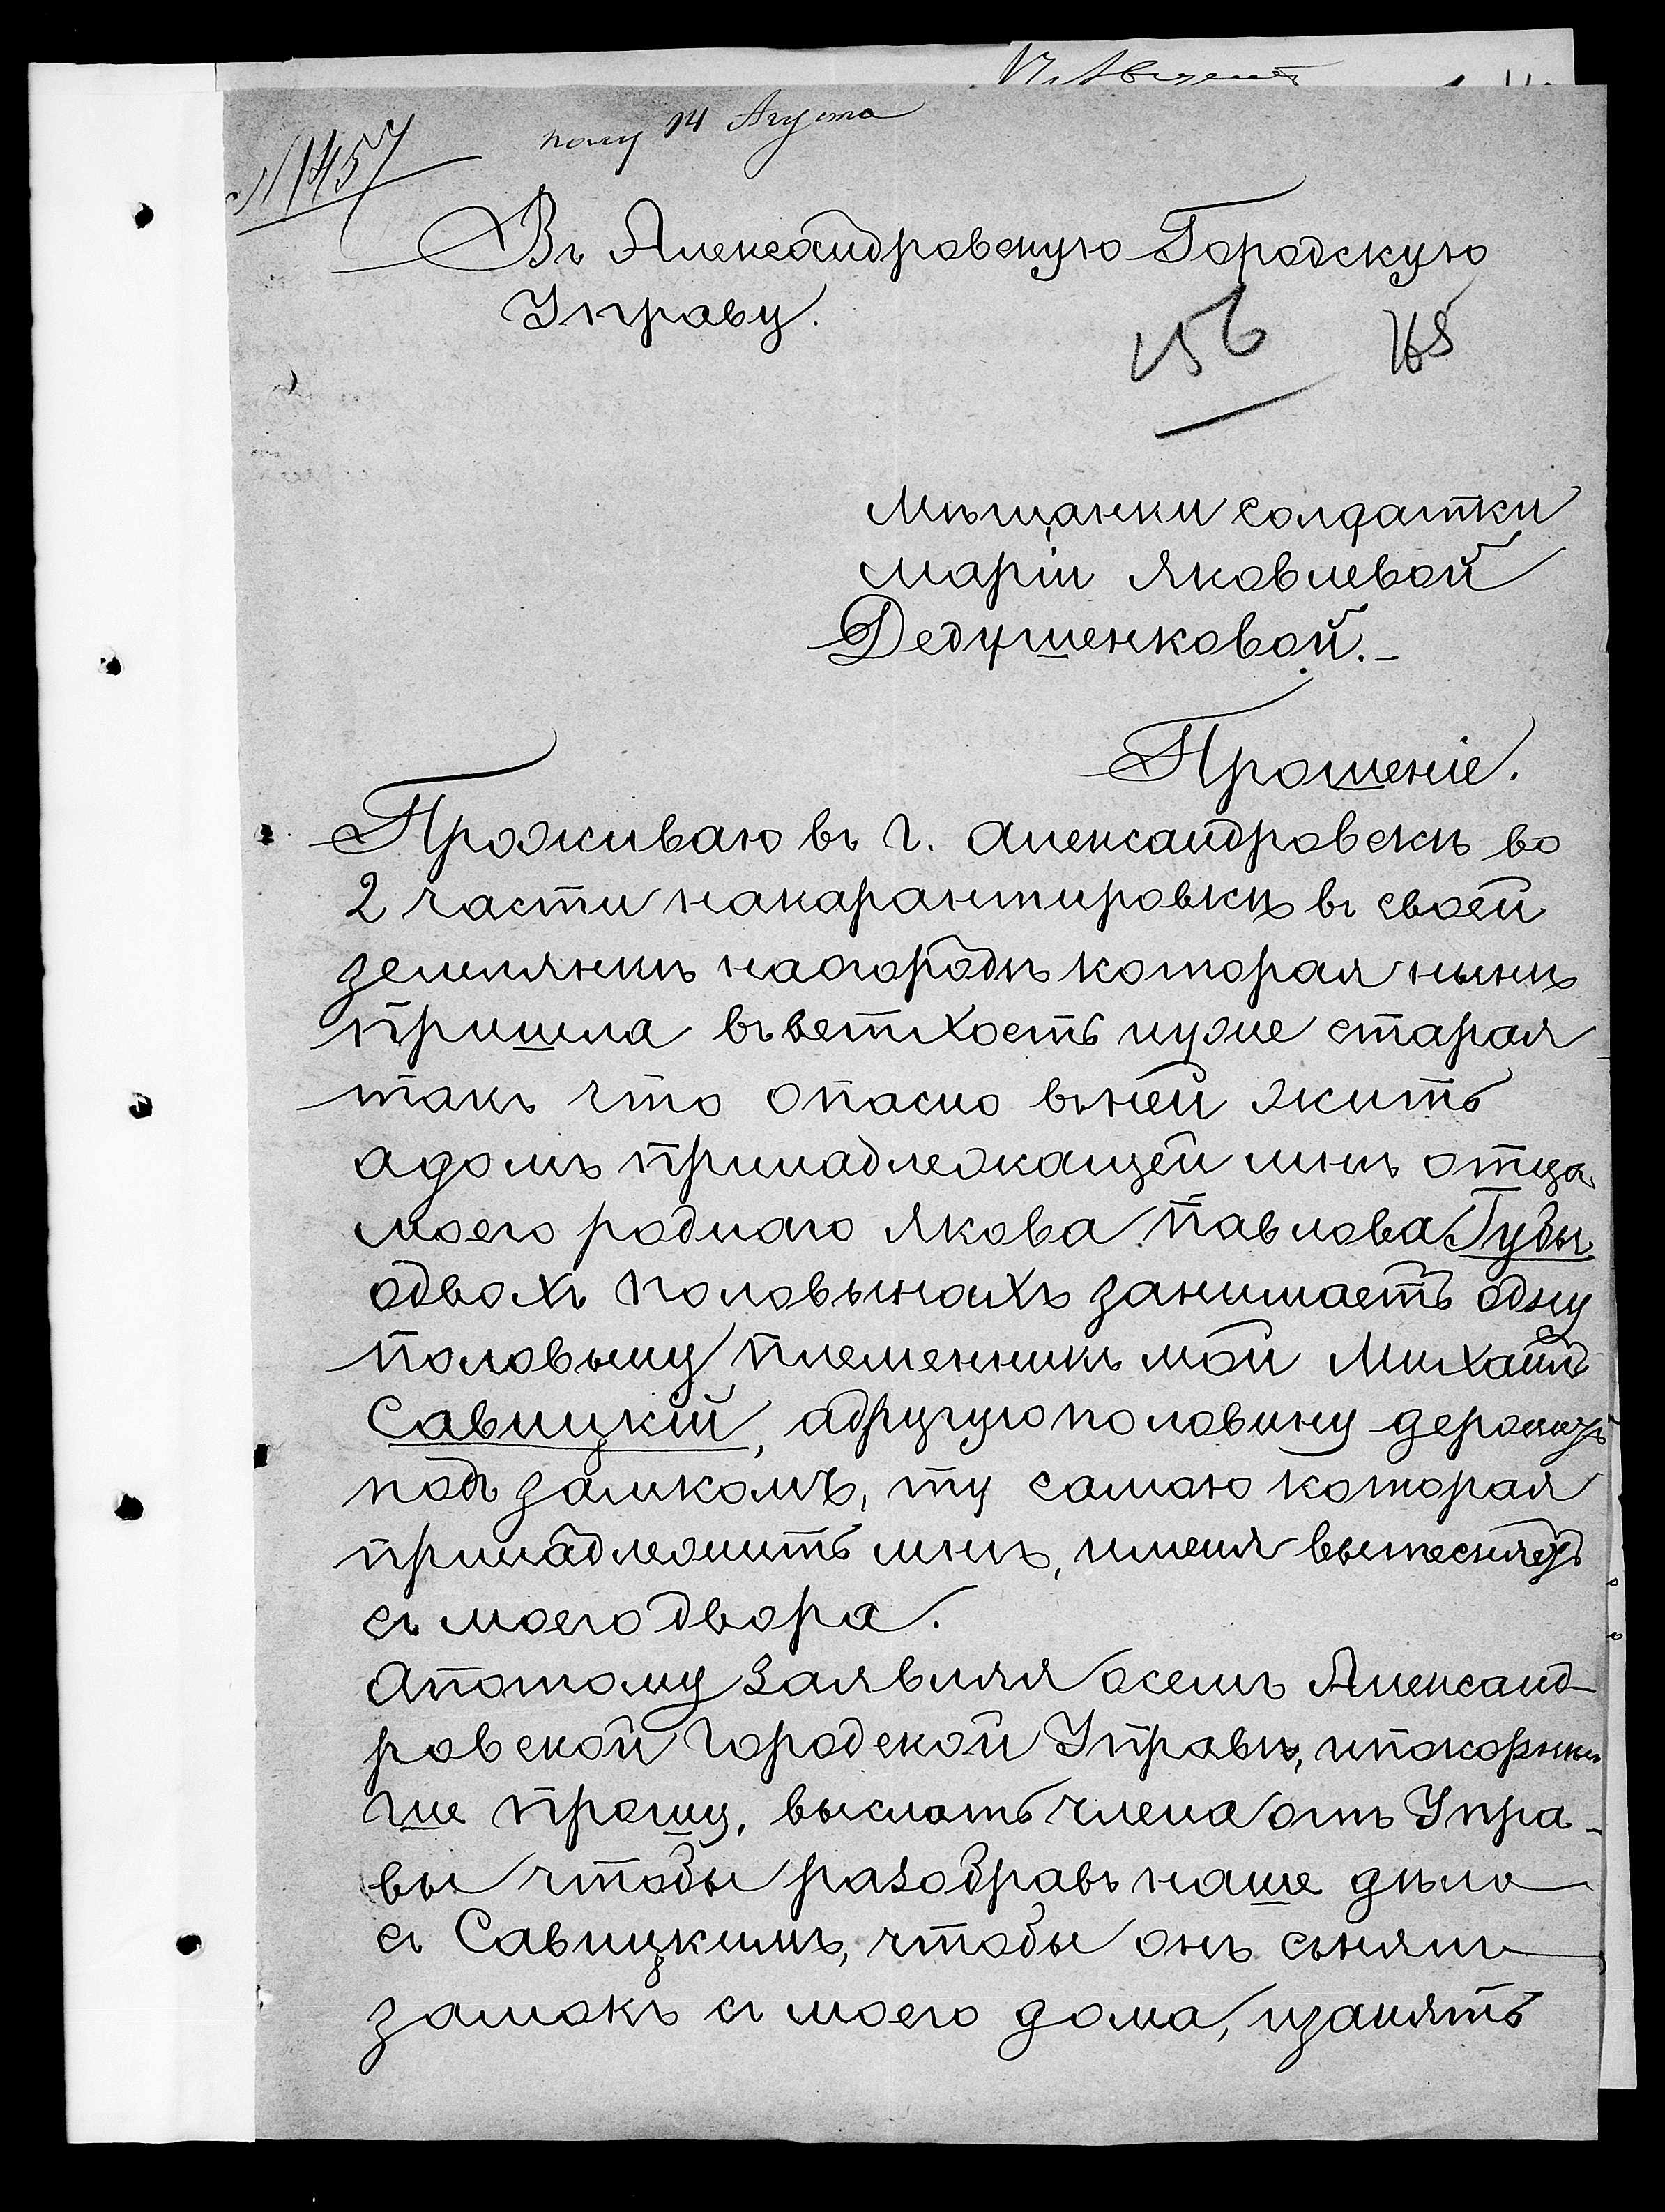 № 1457
полу 14 Агуста
Въ Александровскую Городскую
Управу.
156 168
Мѣщанки солдатки
Маріи Яковлевой
Дедушенковой.-
Прошеніе.
Проживаю въ г. Александровскѣ во
2 части накарантировкѣ въ своей
землянкѣ наогородѣ которая нынѣ
пришла въветхость иуже старая
такъ что опасно вьней жить
адомъ принадлежащей мнѣ отца
моего роднаго Якова Павлова Губы
одвохъ половынахъ занимаетъ одну
половыну племенникъ мой Михаилъ
Савицкій, адругую половину держитъ
подъ замкомъ, ту самою которая
принадлежитъ мнѣ, именя вытесняетъ
съ моего двора.
Апотому Заявляя осемъ Александ-
ровской Городской Управѣ, ипокорнѣ
ше прошу, выслать члена отъ Упра-
вы чтобы разобравъ наше дѣло
съ Савицкимъ, чтобы онъ сьнялъ
замокъ съ моего дома, изанять